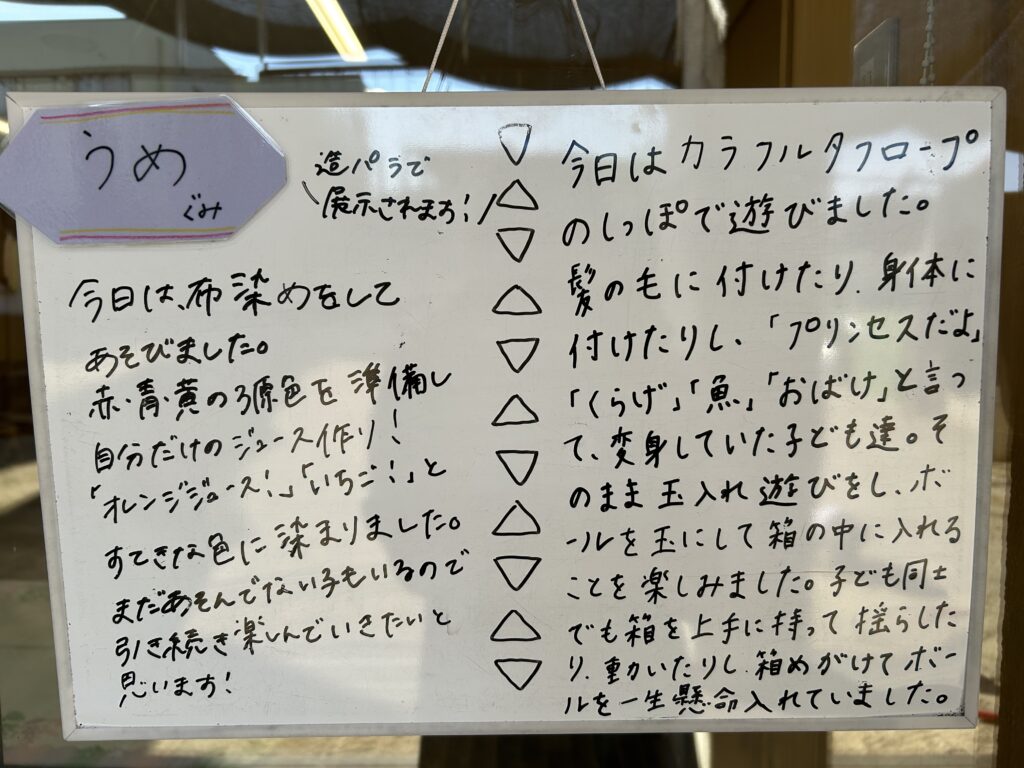 うめ
ぐみ
造パラで
展示されます!
今日は、布染めをして
あそびました。
赤・青・黄の3原色を準備し
自分だけのジュース作り!
「オレンジジュース!」「いちご!」と
すてきな色に染まりました。
まだあそんでない子もいるので
引き続き楽しんでいきたいと
思います!
今日はカラフルタフロープ
のしっぽで遊びました。
髪の毛に付けたり、身体に
付けたりし、「プリンセスだよ」
「くらげ」「魚」「おばけ」と言っ
て、変身していた子ども達。そ
のまま玉入れ遊びをし、ボ
ールを玉にして箱の中に入れる
ことを楽しみました。子ども同士
でも箱を上手に持って揺らした
り、動いたりし、箱めがけてボー
ルを一生懸命入れていました。